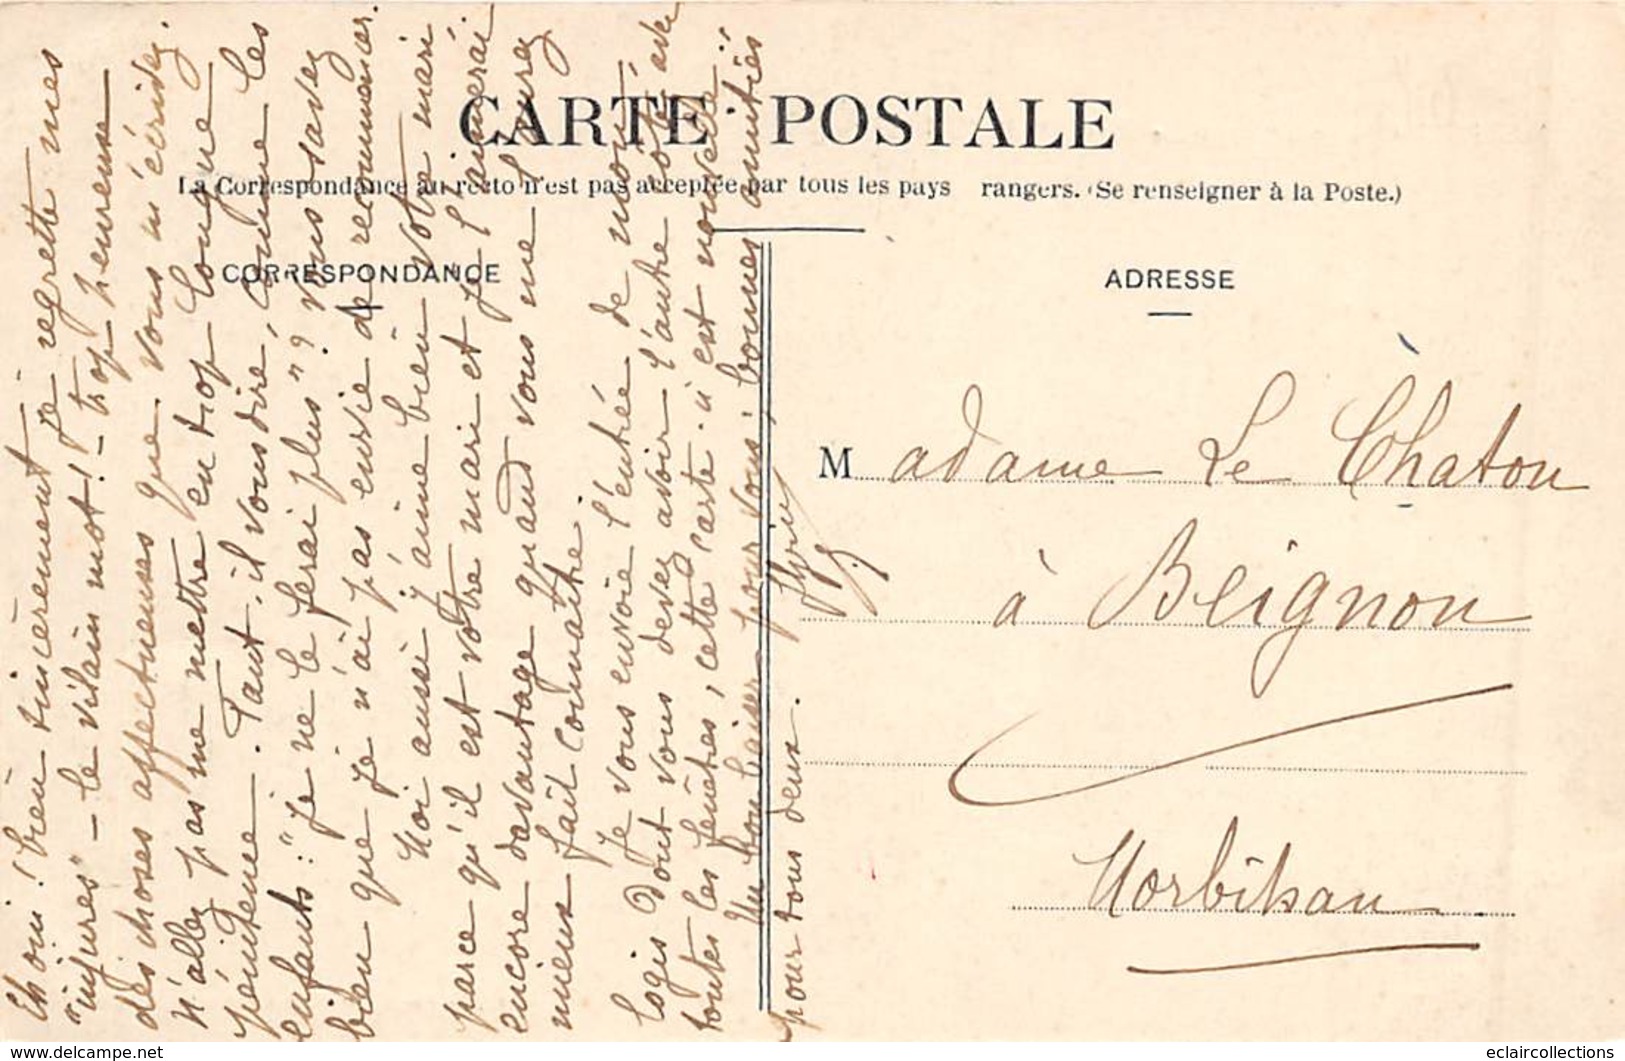 CARTE POSTALE
La Correspondance au recto n'est pas acceptée par tous les pays rangers. (Se renseigner à la Poste.)
CORRESPONDANCE
ADRESSE
Eh oui! bien sincèrement je regrette mes
"injures" - le vilain mot! - trop heureuse
des choses affectueuses que vous m'écrivez.
N'allez pas me mettre en trop longue
pénitence. Faut-il vous dire, comme les
enfants: "je ne le ferai plus"? Vous savez
bien que je n'ai pas envie de recommencer.
Moi aussi j'aime bien votre mari
parce qu'il est votre mari et je l'aimerai
encore davantage quand vous me l'aurez
mieux fait connaître.
Je vous envoie l'entrée de mon
logis dont vous devez avoir l'autre côté avec
toutes les fenêtres, cette carte-ci est nouvelle
Un bon baiser pour vous; bonnes amitiés
pour tous deux.
Madame Le Chaton
à Beignon
Morbihan
eclaircollections
www.delcampe.net